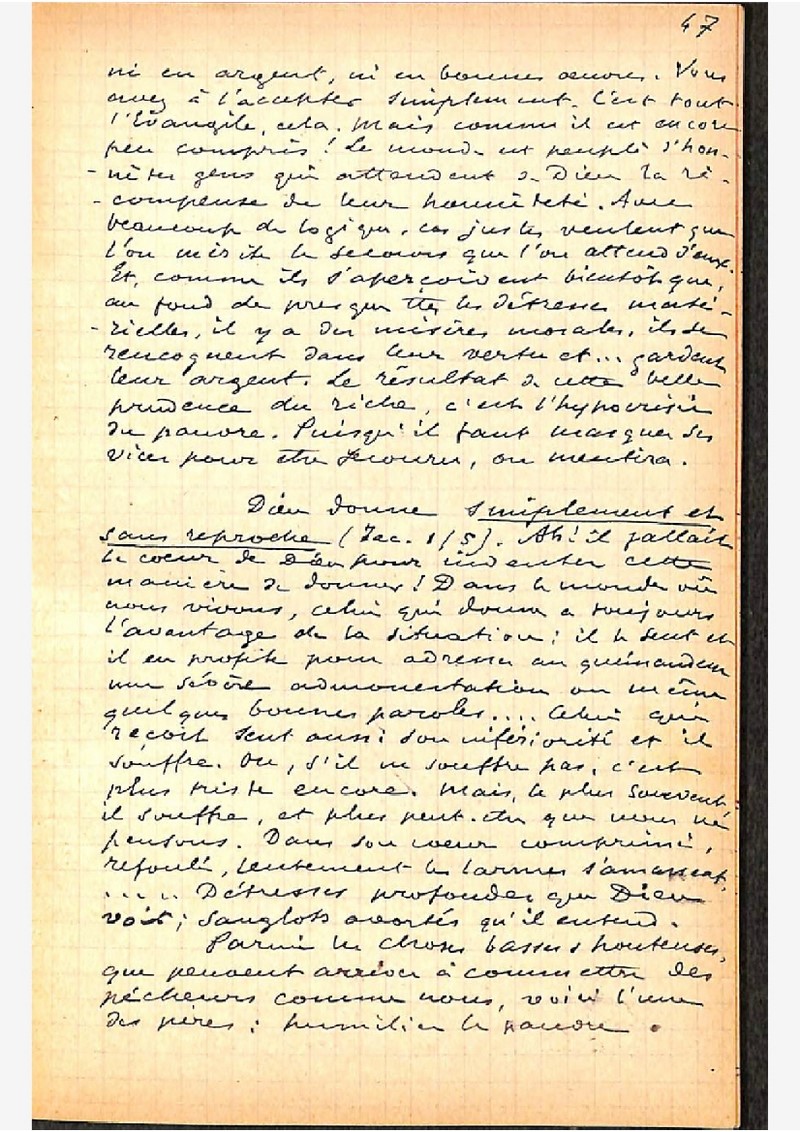 47
ni en argent, ni en bonnes œuvres. Vous
avez à l'accepter simplement. C'est tout
l'Évangile, cela. Mais comme il est encore
peu compris ! Le monde est peuplé d'hon-
-nêtes gens qui attendent de Dieu la ré-
-compense de leur honnêteté. Avec
beaucoup de logique, ces justes veulent que
l'on mérite le secours que l'on attend d'eux.
Et, comme ils s'aperçoivent bientôt que,
au fond de presque ttes les détresses maté-
-rielles, il y a des misères morales, ils se
rencognent dans leur vertu et... gardent
leur argent. Le résultat de cette belle
prudence du riche, c'est l'hypocrisie
du pauvre. Puisqu'il faut masquer ses
vices pour être secouru, on mentira.
Dieu donne simplement et
sans reproche (Jac. 1/5). Ah ! il fallait
le cœur de Dieu pour inventer cette
manière de donner ! Dans le monde où
nous vivons, celui qui donne a toujours
l'avantage de la situation ; il le sent et
il en profite pour adresser au quémandeur
une sévère admonestation ou même
quelques bonnes paroles.... Celui qui
reçoit sent aussi son infériorité et il
souffre. Ou, s'il ne souffre pas, c'est
plus triste encore. Mais, le plus souvent
il souffre, et plus peut-être que nous ne
pensons. Dans son cœur comprimé,
refoulé, lentement les larmes s'amassent,
..... Détresses profondes que Dieu
voit ; sanglots avortés qu'il entend.
Parmi les choses basses & honteuses,
que peuvent arriver à commettre des
pécheurs comme nous, voici l'une
des pires : humilier le pauvre .